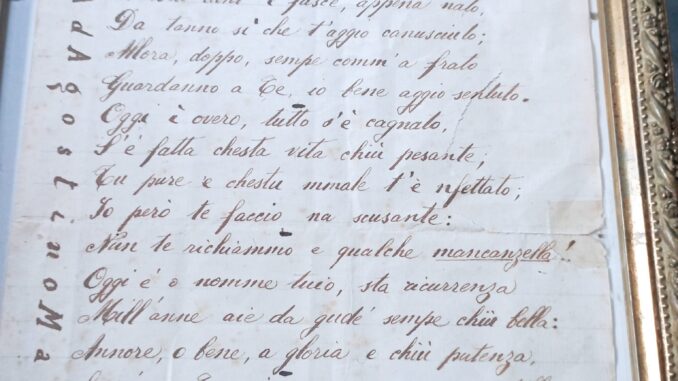 fasce, appena nato,
Da tanno si che t'aggio canusciuto;
Allora, doppo, sempe comm'a frato
Guardanno a Te, io bene aggio sentuto.
Oggi è overo, tutto s'è cagnato,
S'è fatta chesta vita chiù pesante;
Tu pure e chestu mmale t'è nfettato;
Io però te faccio na scusante:
Nun te richiammo e qualche mancanzella!
Oggi é o nomme tuio, sta ricurrenza
Mill'anne aie da gudé sempe chiù bella:
Annore, o bene, a gloria e chiù putenza,